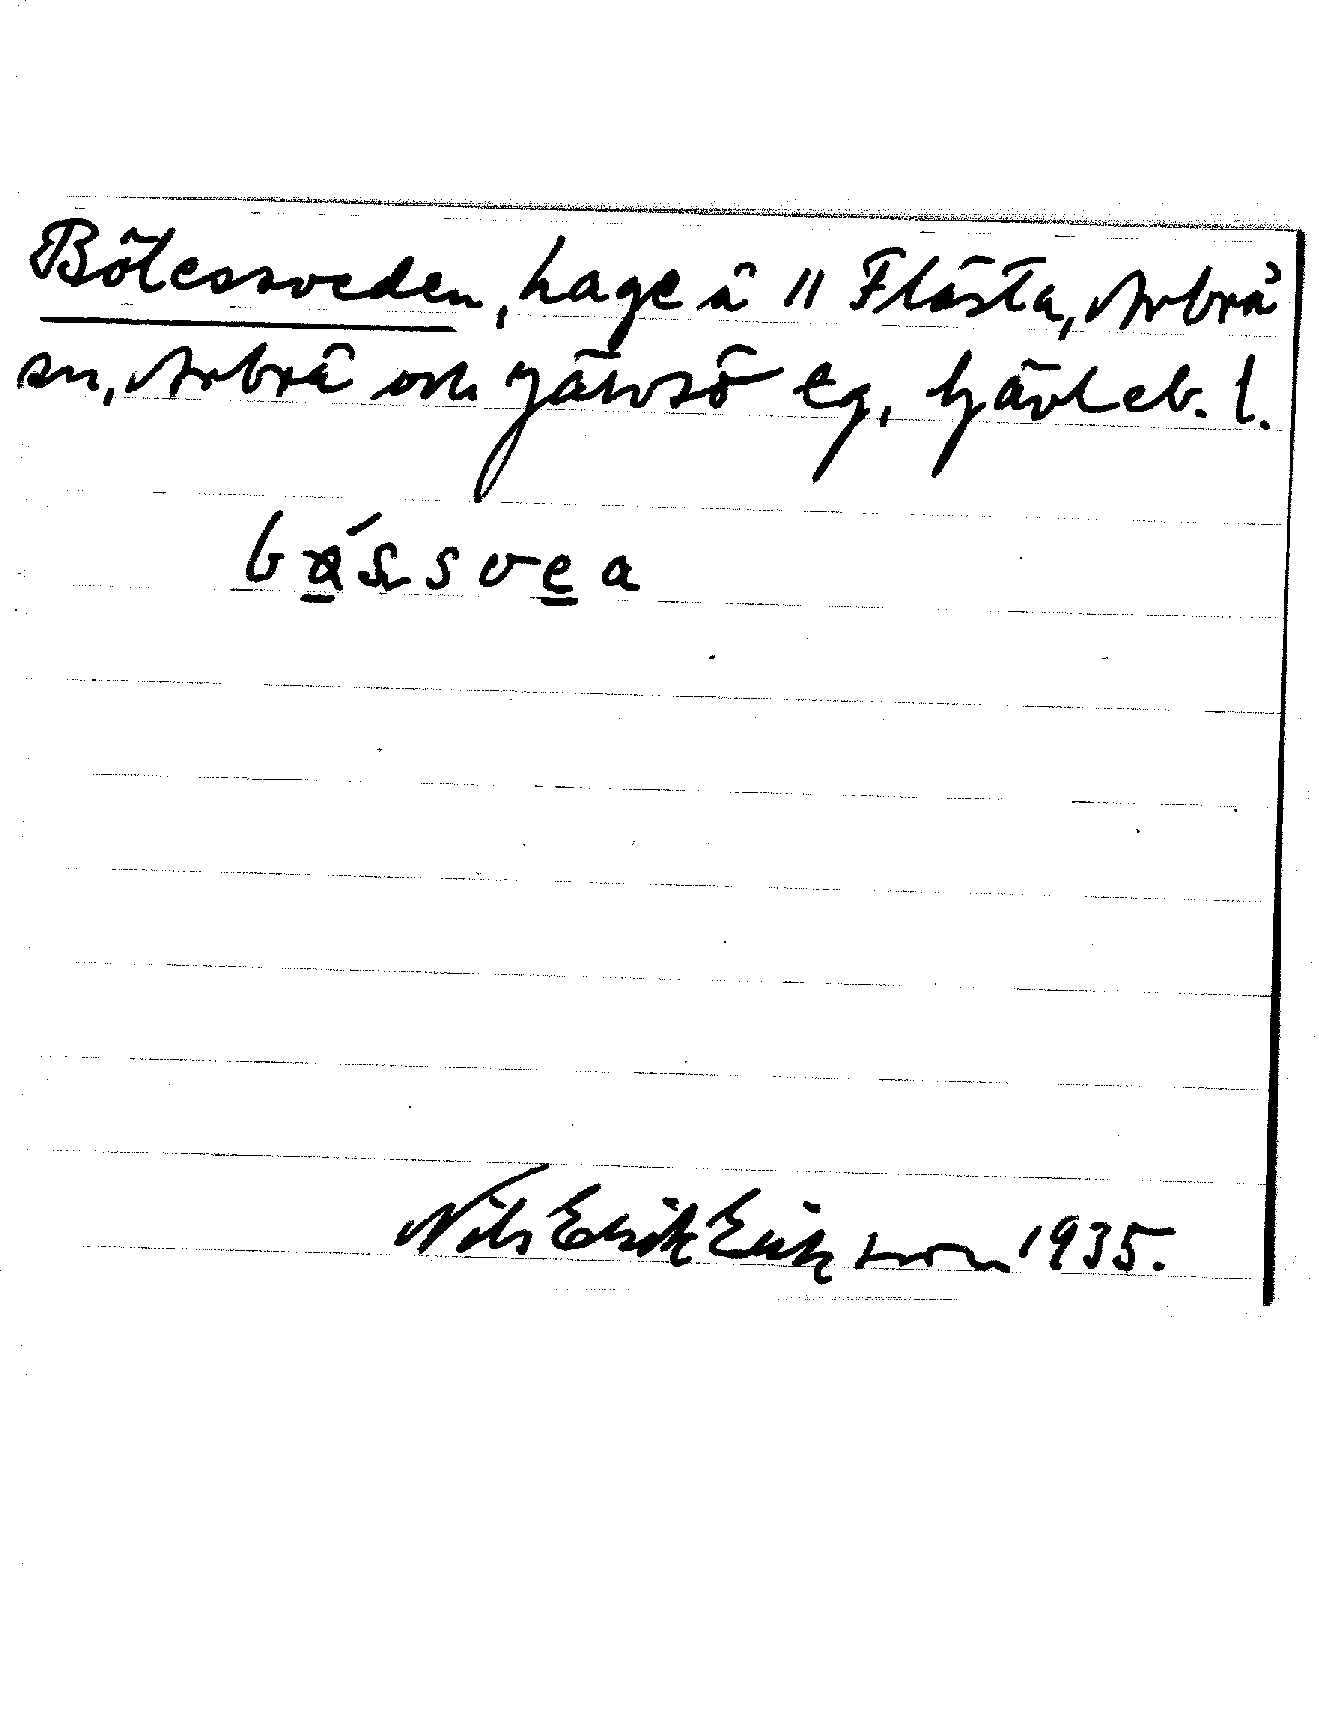 Bölessveden, hage å 11 Flästa, Arbrå
sn, Arbrå och Järvsö tg, Gävleb. l.
Nils Erik Eriksson 1935.